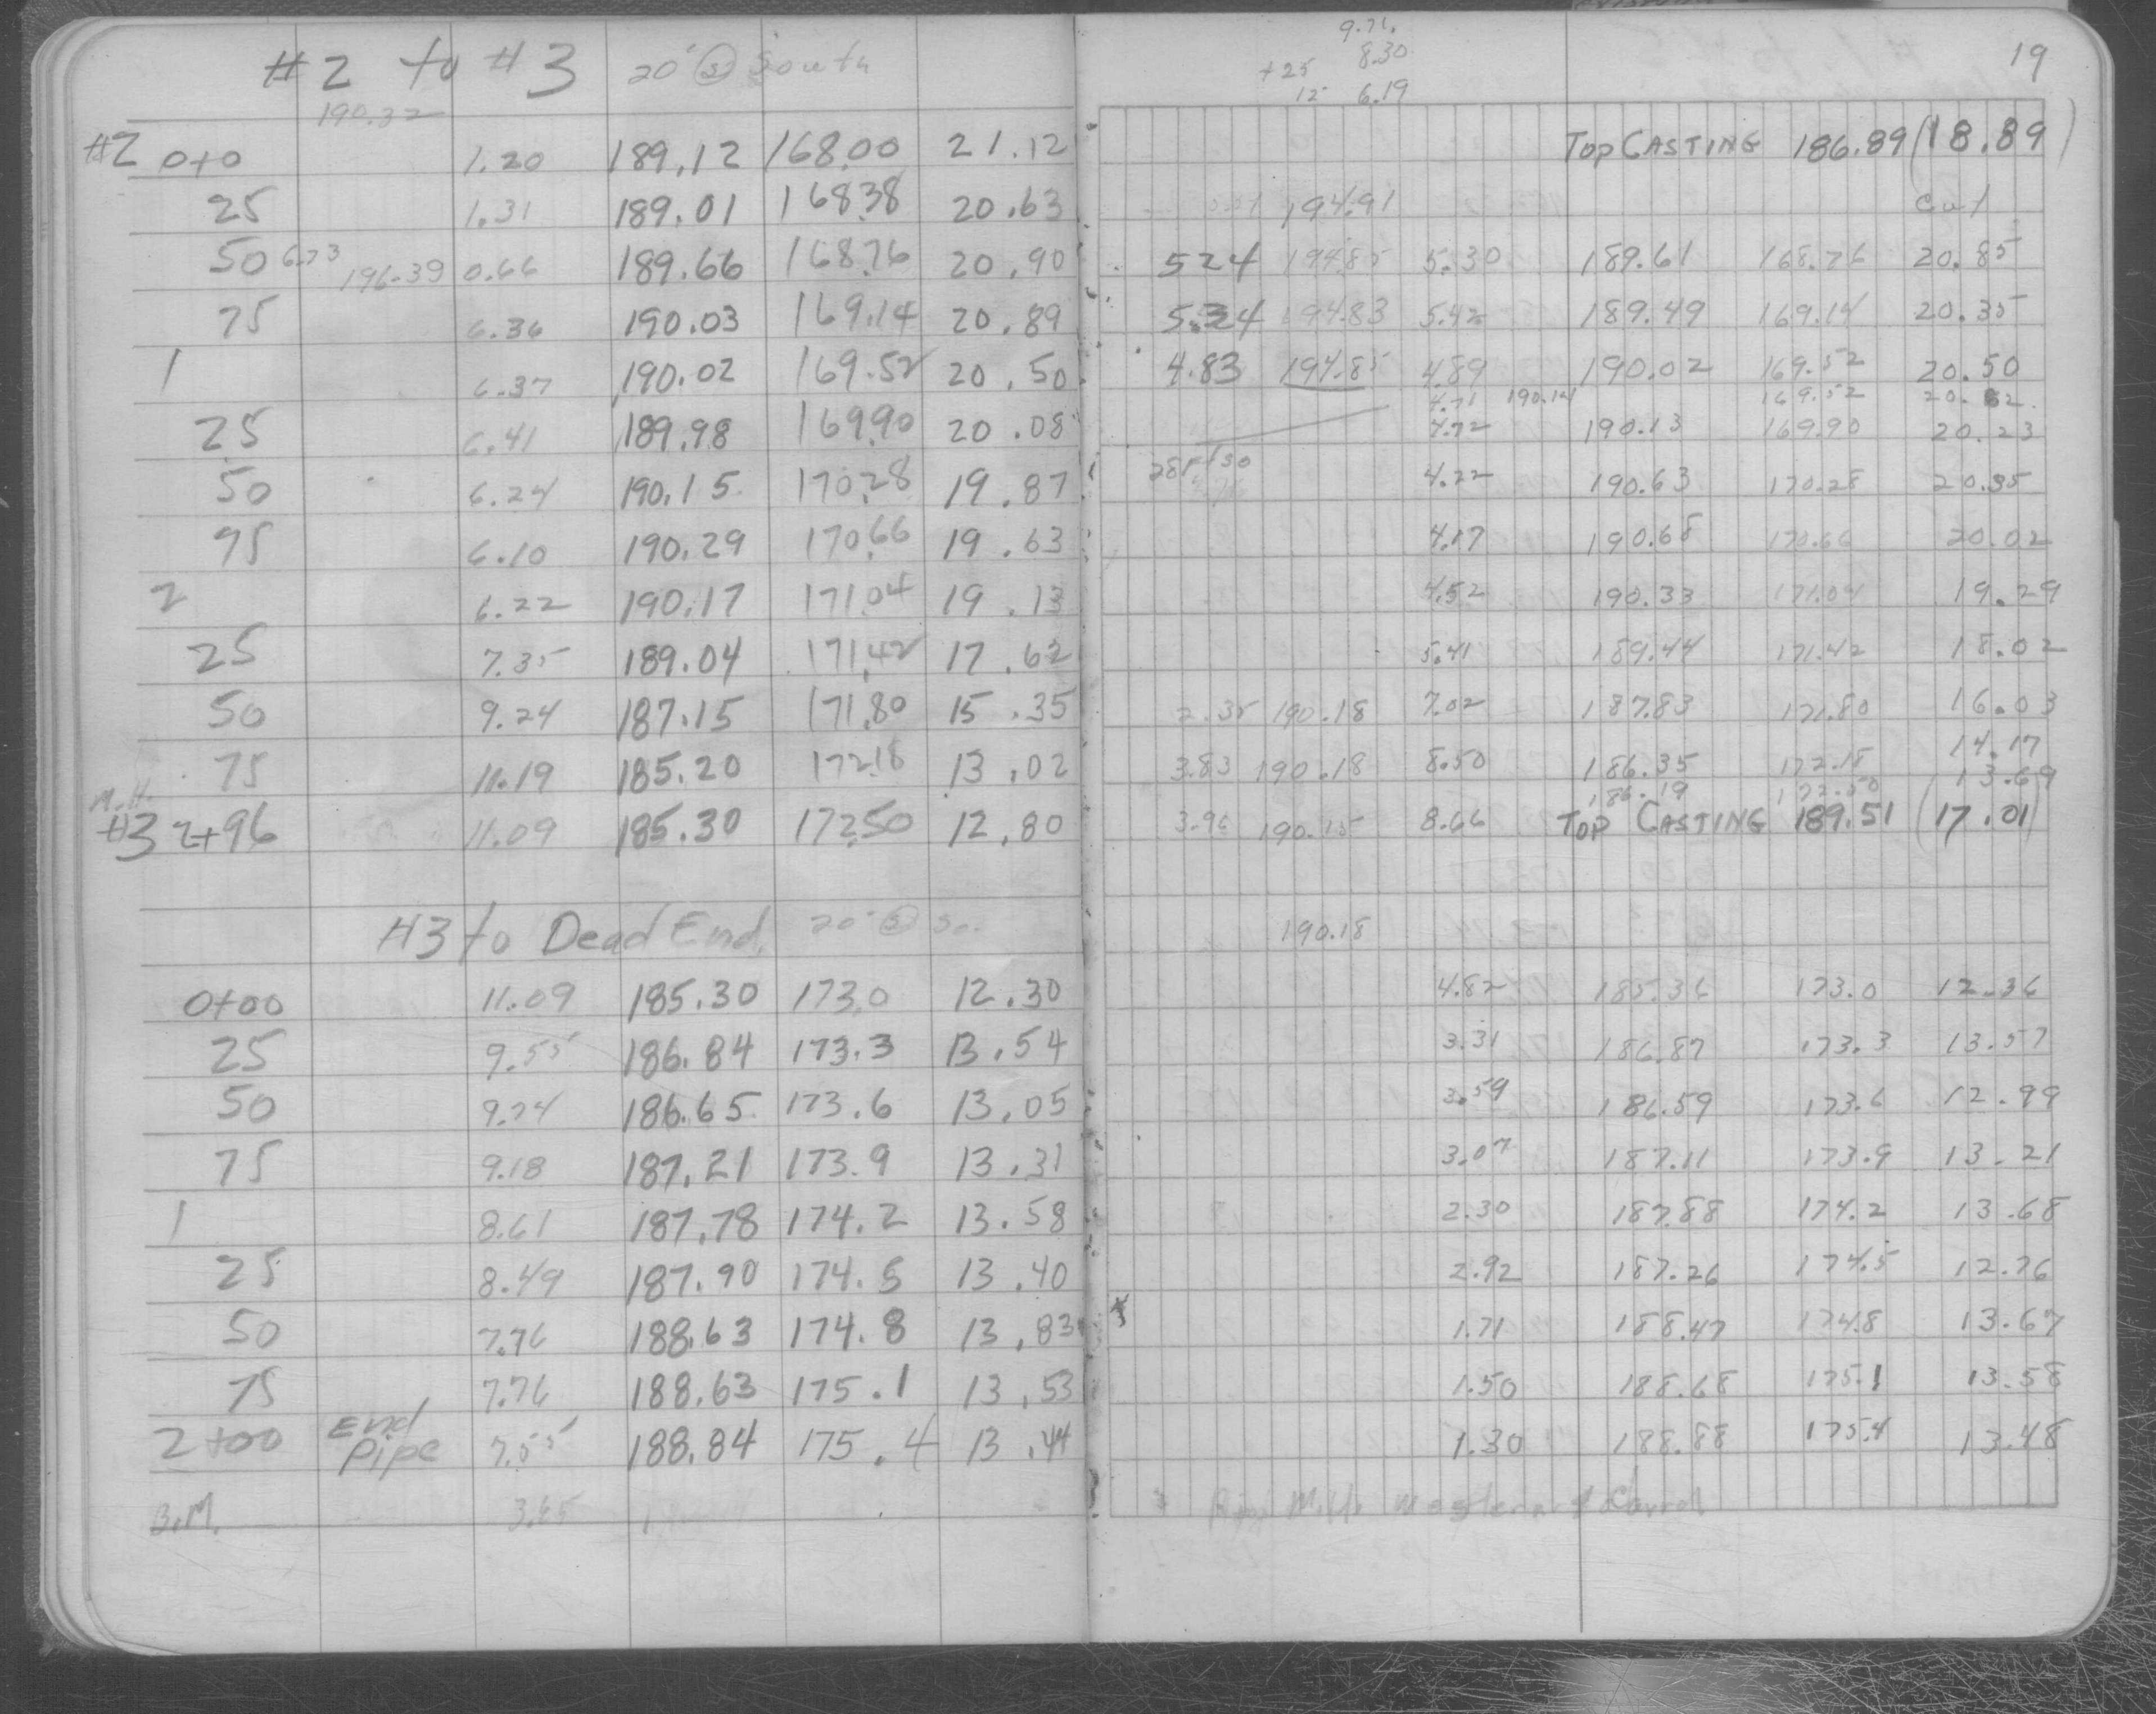 #2 to #3 20' South
190.32
#2 0+0 1.20 189.12 168.00 21.12
25 1.31 189.01 168.38 20.63
50 6.73 196.39 0.66 189.66 168.76 20.90
75 6.36 190.03 169.14 20.89
1 6.37 190.02 169.52 20.50
25 6.41 189.98 169.90 20.08
50 6.24 190.15 170.28 19.87
75 6.10 190.29 170.66 19.63
2 6.22 190.17 171.04 19.13
25 7.35 189.04 171.42 17.62
50 9.24 187.15 171.80 15.35
75 11.19 185.20 172.18 13.02
M.H.
#3 2+96 11.09 185.30 172.50 12.80
#3 to Dead End, 20' So.
0+00 11.09 185.30 173.0 12.30
25 9.55 186.84 173.3 13.54
50 9.74 186.65 173.6 13.05
75 9.18 187.21 173.9 13.31
1 8.61 187.78 174.2 13.58
25 8.49 187.90 174.5 13.40
50 7.76 188.63 174.8 13.83
75 7.76 188.63 175.1 13.53
2+00 End Pipe 7.55 188.84 175.4 13.44
B.M. 3.65
9.71.
+25 8.30
12 6.19
19
Top CASTING 186.89 (18.89)
194.91 Cut
5.24 194.85 5.30 189.61 168.76 20.85
5.34 194.83 5.42 189.49 169.14 20.35
4.83 194.85 4.89 190.02 169.52 20.50
4.71 190.14 169.52 20.62
4.72 190.13 169.90 20.23
4.22 190.63 170.28 20.35
4.17 190.68 170.66 20.02
4.52 190.33 171.04 19.29
5.41 189.44 171.42 18.02
2.35 190.18 7.02 187.83 171.80 16.03
3.83 190.18 8.50 186.35 172.18 14.17
186.19 172.50 13.69
3.96 190.15 8.66 Top CASTING 189.51 (17.01)
190.18
4.82 185.36 173.0 12.36
3.31 186.87 173.3 13.57
3.59 186.59 173.6 12.99
3.07 187.11 173.9 13.21
2.30 187.88 174.2 13.68
2.92 187.26 174.5 12.76
1.71 188.47 174.8 13.67
1.50 188.68 175.1 13.58
1.30 188.88 175.4 13.48